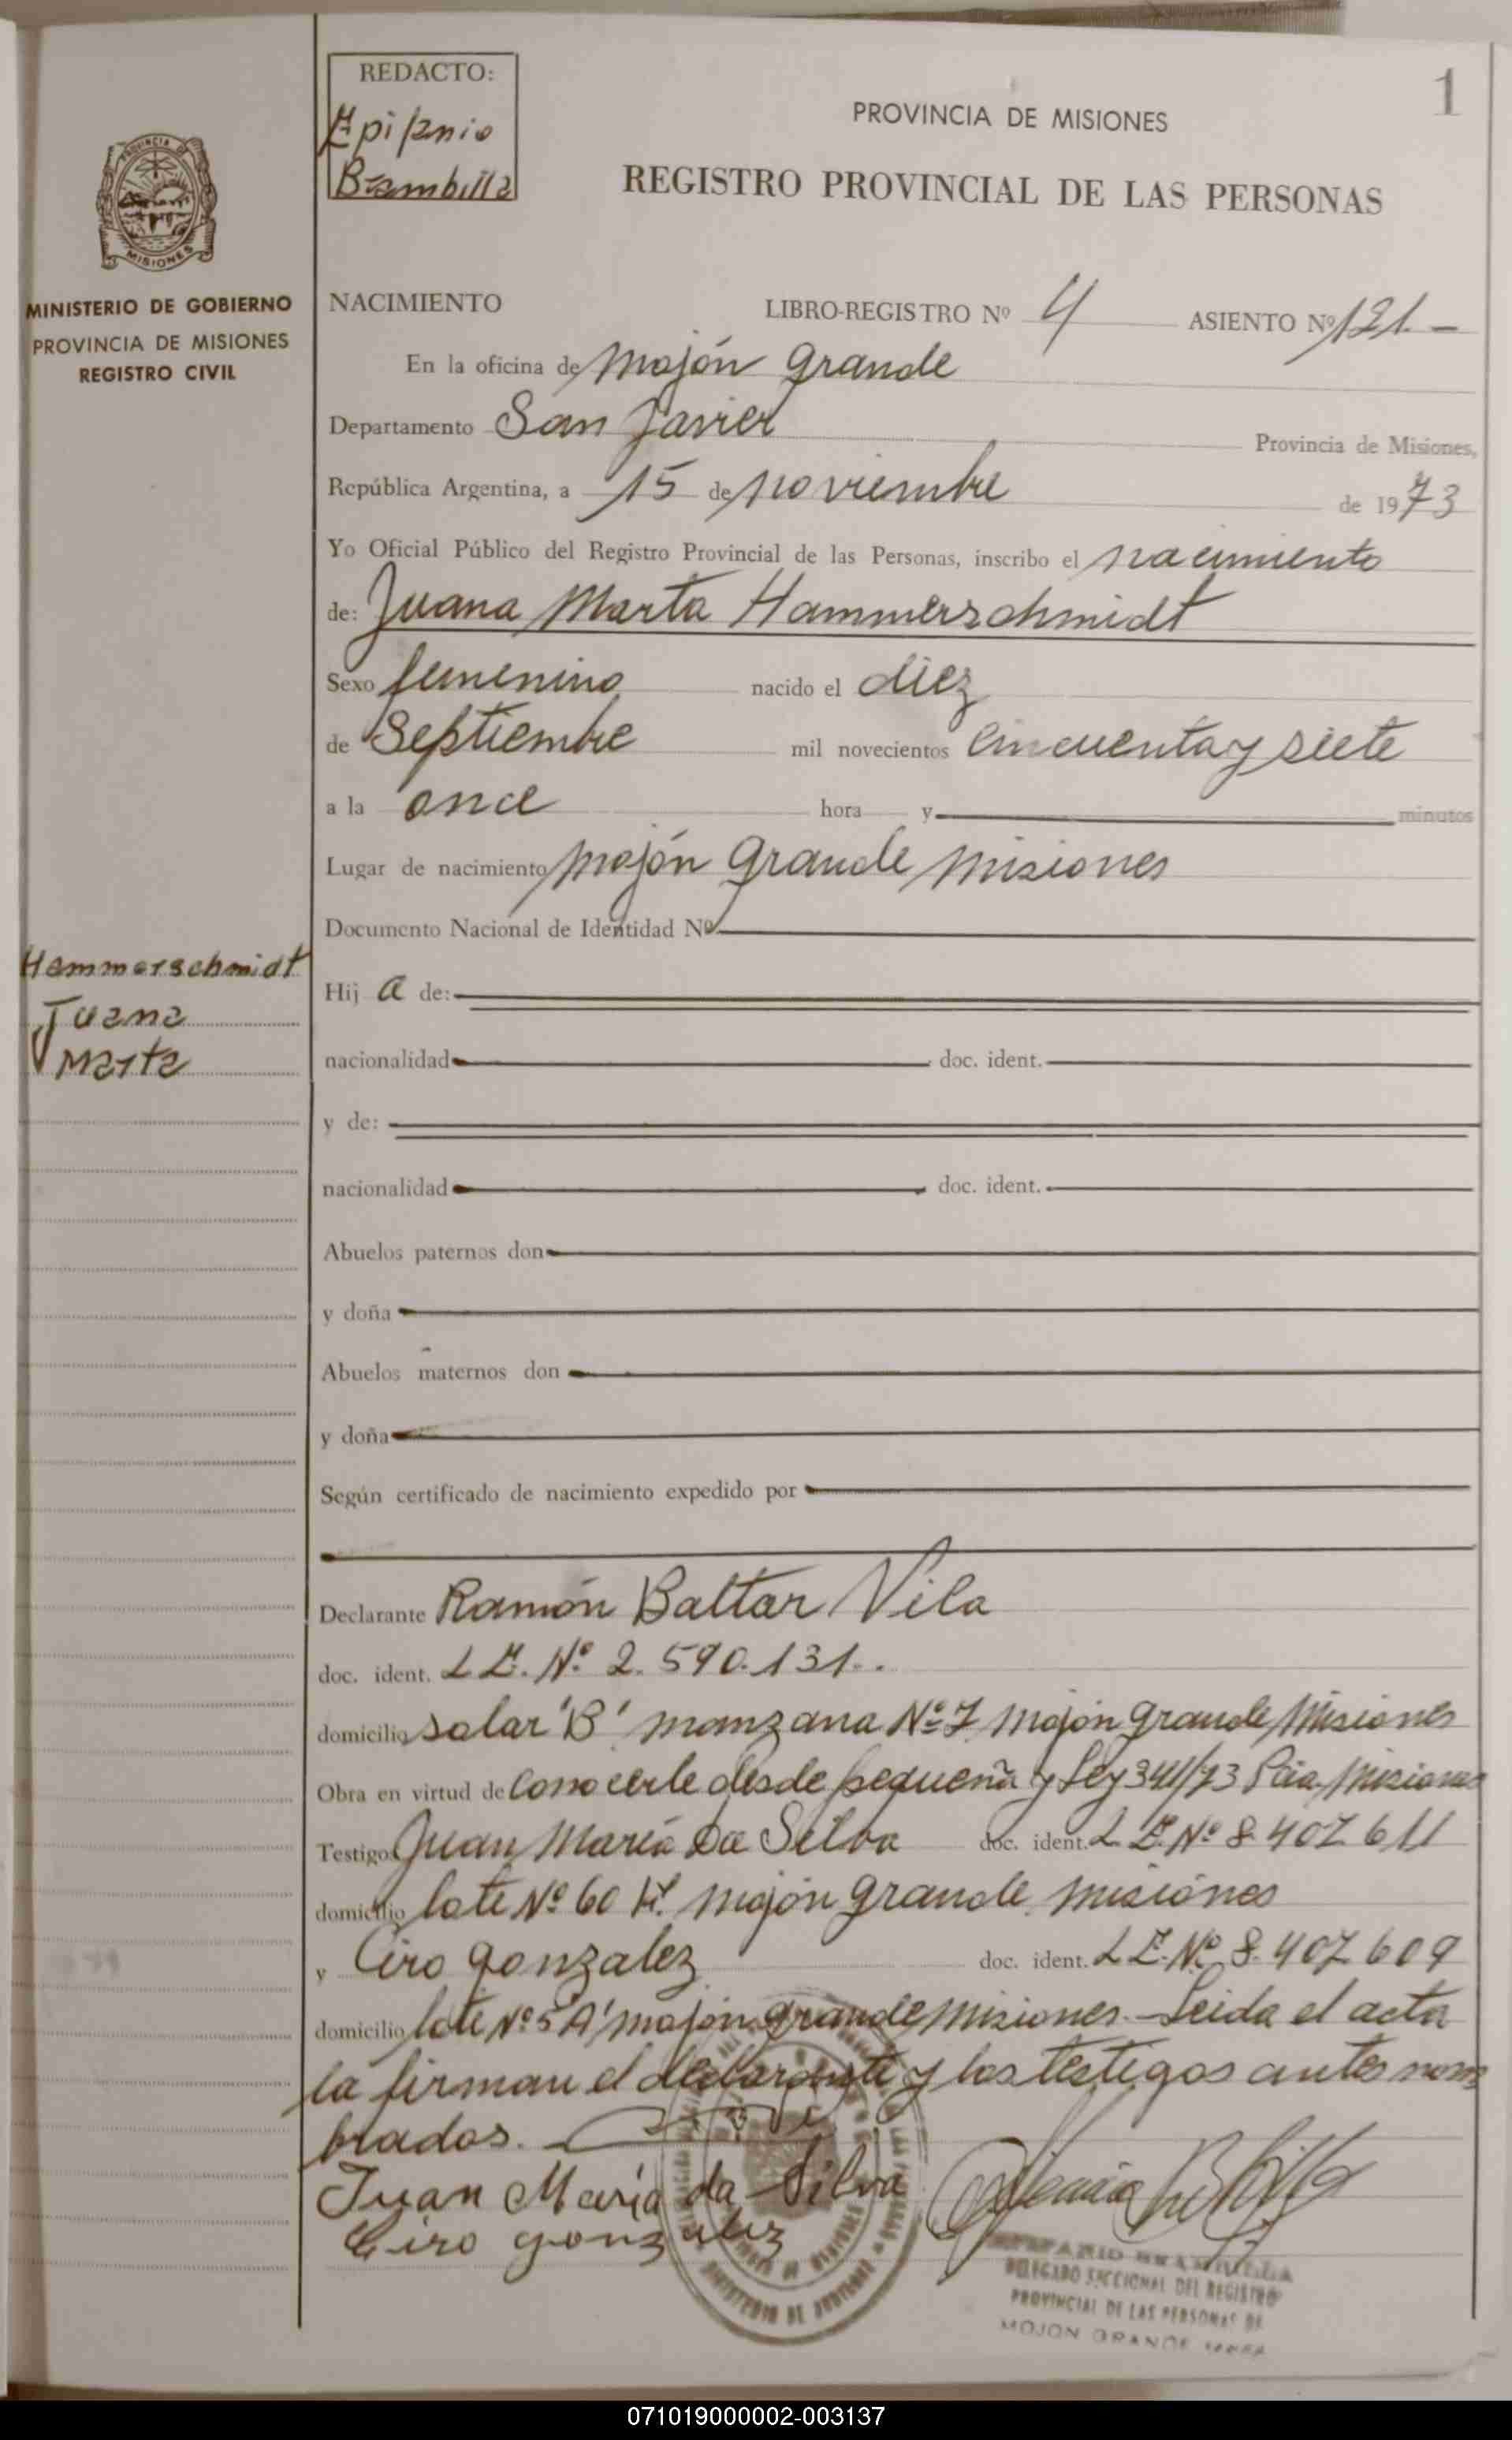 1
REDACTO:
Epifanio
Brambilla
PROVINCIA DE MISIONES
REGISTRO PROVINCIAL DE LAS PERSONAS
PROVINCIA DE
MISIONES
MINISTERIO DE GOBIERNO
PROVINCIA DE MISIONES
REGISTRO CIVIL
NACIMIENTO LIBRO-REGISTRO Nº 4 ASIENTO Nº 121.-
En la oficina de Mojón Grande
Departamento San Javier Provincia de Misiones,
República Argentina, a 15 de noviembre de 1973
Yo Oficial Público del Registro Provincial de las Personas, inscribo el nacimiento
de: Juana Marta Hammerschmidt
Sexo femenino nacido el diez
de Septiembre mil novecientos cincuenta y siete
a la once hora y minutos
Lugar de nacimiento Mojón Grande Misiones
Documento Nacional de Identidad Nº
Hammerschmidt
Juana
Marta
Hij a de:
nacionalidad doc. ident.
y de:
nacionalidad doc. ident.
Abuelos paternos don
y doña
Abuelos maternos don
y doña
Según certificado de nacimiento expedido por
Declarante Ramón Baltar Vila
doc. ident. L E. Nº 2.590.131..
domicilio solar 'B' manzana Nº 7 Mojón Grande Misiones
Obra en virtud de conocerle desde pequeña y Ley 341/73 Pcia. Misiones
Testigos Juan María Da Silva doc. ident. L E. Nº 8.407611
domicilio lote Nº 60 Mojón Grande Misiones
y Ciro Gonzalez doc. ident. L E. Nº 8.407609
domicilio lote Nº 5 'A' Mojón Grande Misiones.- Leida el acta
la firman el declarante y los testigos antes nom
brados.
Juan María da Silva
Ciro gonzalez
MINISTERIO DE
EPIFANIO BRAMBILLA
DELEGADO SECCIONAL DEL REGISTRO
PROVINCIAL DE LAS PERSONAS DE
MOJON GRANDE
071019000002-003137